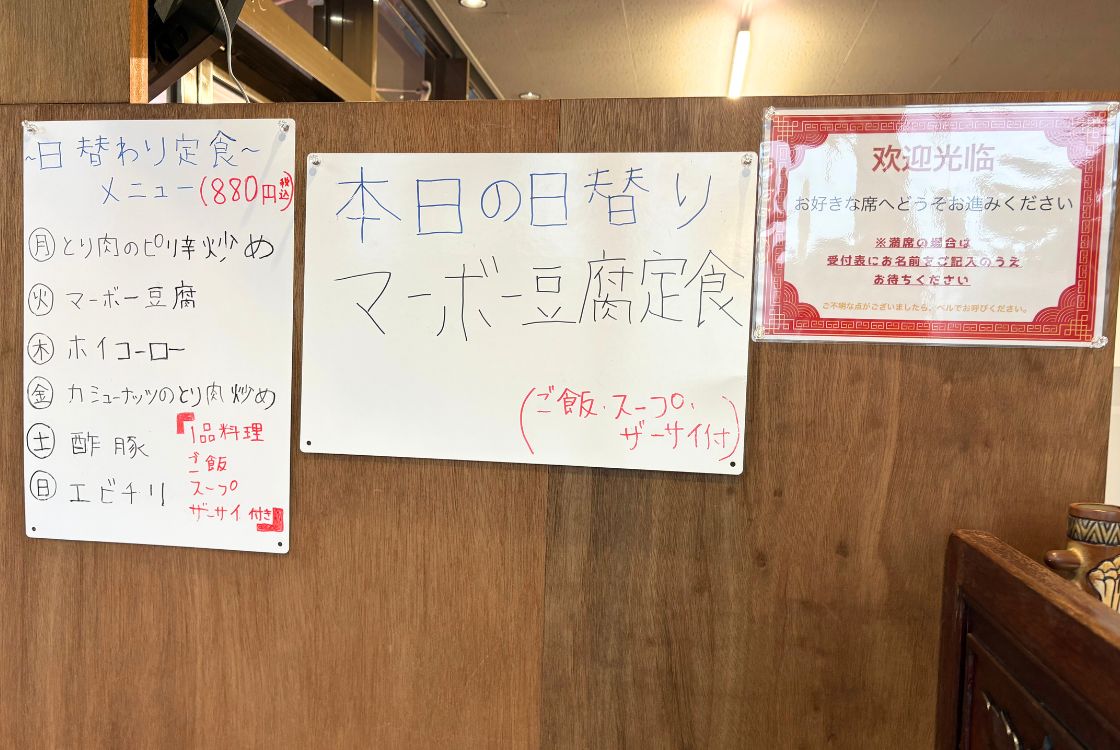 ~日替わり定食~
メニュー(880円税込)
月 とり肉のピリ辛炒め
火 マーボー豆腐
木 ホイコーロー
金 カシューナッツのとり肉炒め
土 酢豚
日 エビチリ
「1品料理
ご飯
スープ
ザーサイ付き」
本日の日替り
マーボー豆腐定食
(ご飯・スープ・
ザーサイ付)
欢迎光临
お好きな席へどうぞお進みください
※満席の場合は
受付表にお名前をご記入のうえ
お待ちください
ご不明な点がございましたら、ベルでお呼びください。